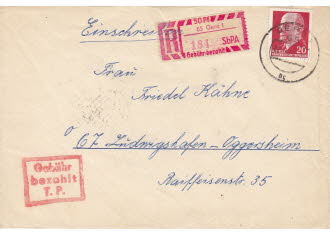 Einschrei
50 Pf
65 Gera 1
R
184
SbPA
Gebühr bezahlt
20
Frau
Friedel Kühne
67 Ludwigshafen - Oggersheim
Raiffeisenstr. 35
Gebühr
bezahlt
T. P.